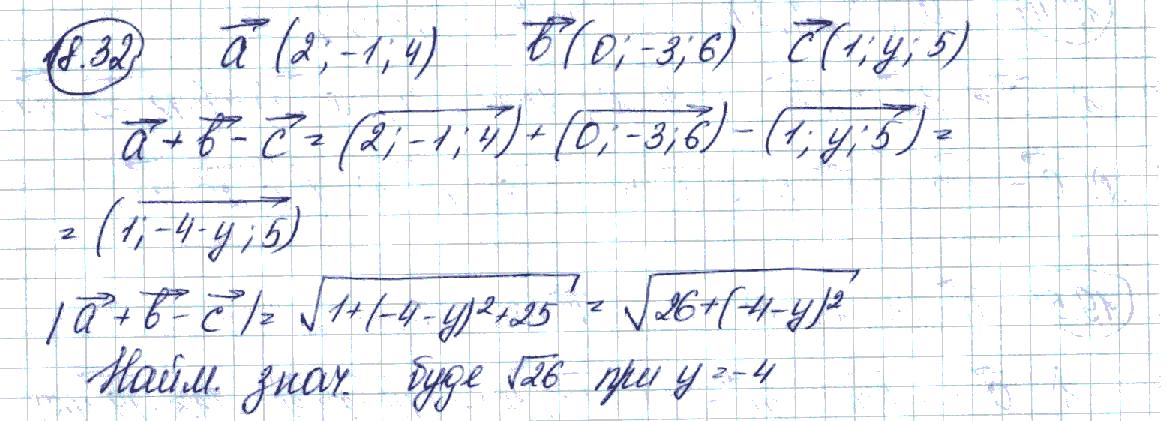 18.32 a⃗ (2; -1; 4) b⃗ (0; -3; 6) c⃗ (1; y; 5)
a⃗ + b⃗ - c⃗ = (2; -1; 4) + (0; -3; 6) - (1; y; 5) =
= (1; -4 - y; 5)
|a⃗ + b⃗ - c⃗| = √(1+(-4-y)²+25) = √(26+(-4-y)²)
Найм. знач. буде √26 при y = -4